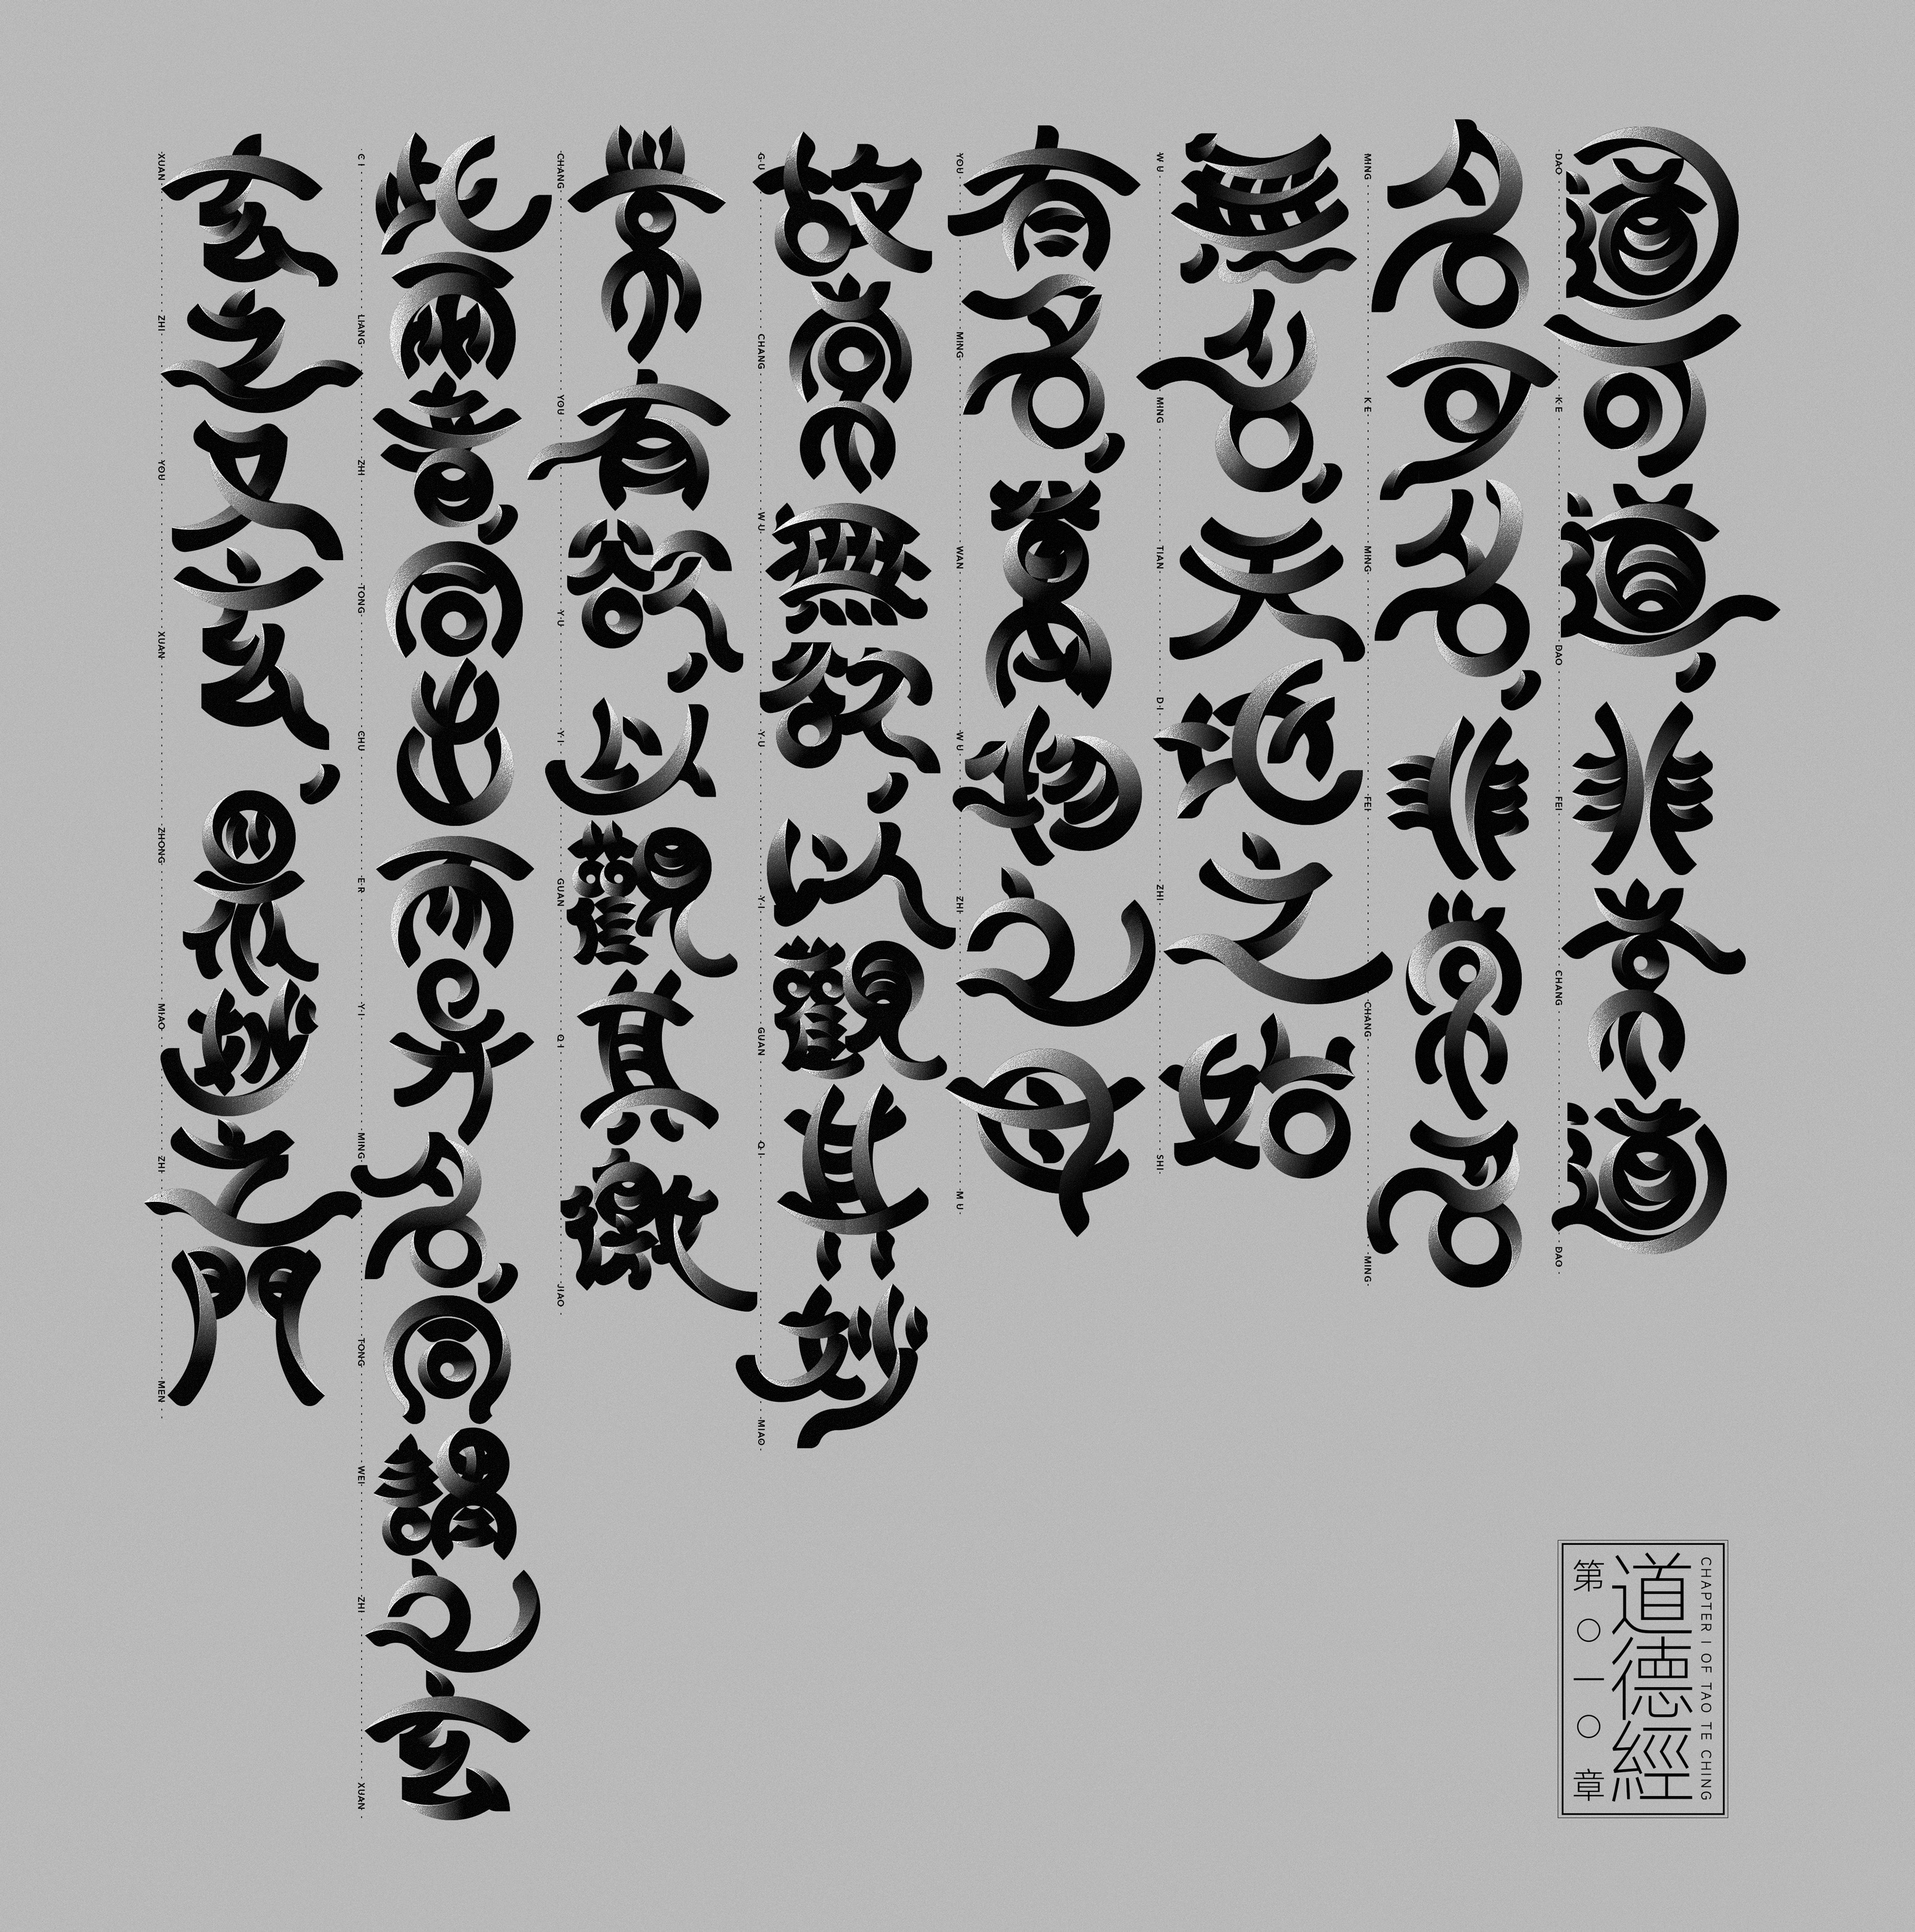 道可道，非常道
DAO KE DAO FEI CHANG DAO
名可名，非常名
MING KE MING FEI CHANG MING
無名，天地之始
WU MING TIAN DI ZHI SHI
有名，萬物之母
YOU MING WAN WU ZHI MU
故常無欲，以觀其妙
GU CHANG WU YU YI GUAN QI MIAO
常有欲，以觀其徼
CHANG YOU YU YI GUAN QI JIAO
此兩者，同出而異名，同謂之玄
CI LIANG ZHI TONG CHU ER YI MING TONG WEI ZHI XUAN
玄之又玄，眾妙之門
XUAN ZHI YOU XUAN ZHONG MIAO ZHI MEN
CHAPTER I OF TAO TE CHING
道德經
第〇一〇章